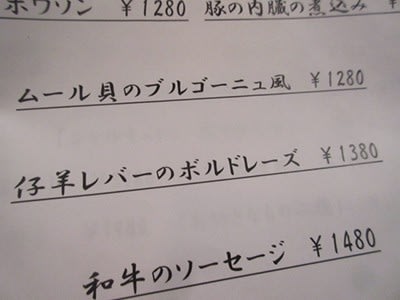 ポワソン ¥1280 豚の内臓の煮込み ¥
ムール貝のブルゴーニュ風 ¥1280
仔羊レバーのボルドレーズ ¥1380
和牛のソーセージ ¥1480